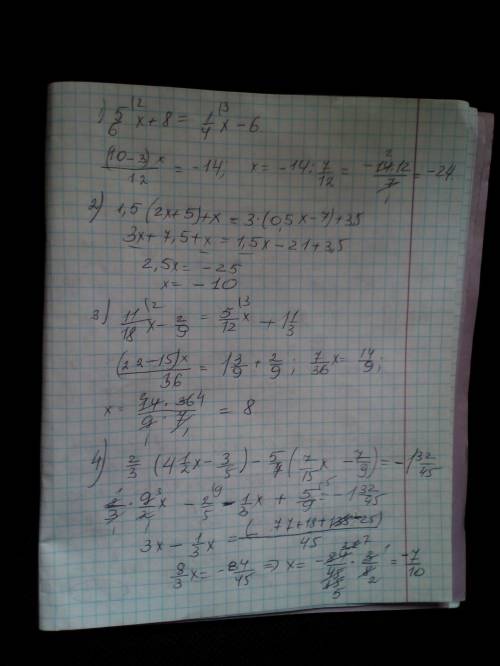 1) 5/6 |2 x + 8 = 1/4 |3 x - 6
(10-3)x/12 = -14; x = -14 : 7/12 = -14·12/7 = -24
2) 1,5(2x+5)+x = 3·(0,5x-7)+3,5
3x+7,5+x = 1,5x-21+3,5
2,5x = -25
x = -10
3) 11/18 |2 x - 2/9 = 5/12 |3 x + 1 1/3
(22-15)x/36 = 1 3/9 + 2/9; 7/36 x = 14/9;
x = 14·36/9·7 = 8
4) 2/3 (4 1/2 x - 3/5) - 5/7 (7/15 x - 7/9) = -1 32/45
2/3 · 9/2 x - 2/5 |9 - 1/3 x + 5/9 |5 = -1 32/45
3x - 1/3 x = (-77+18-25)/45
8/3 x = -84/45 ⇒ x = -84/45 · 3/8 = -7/10